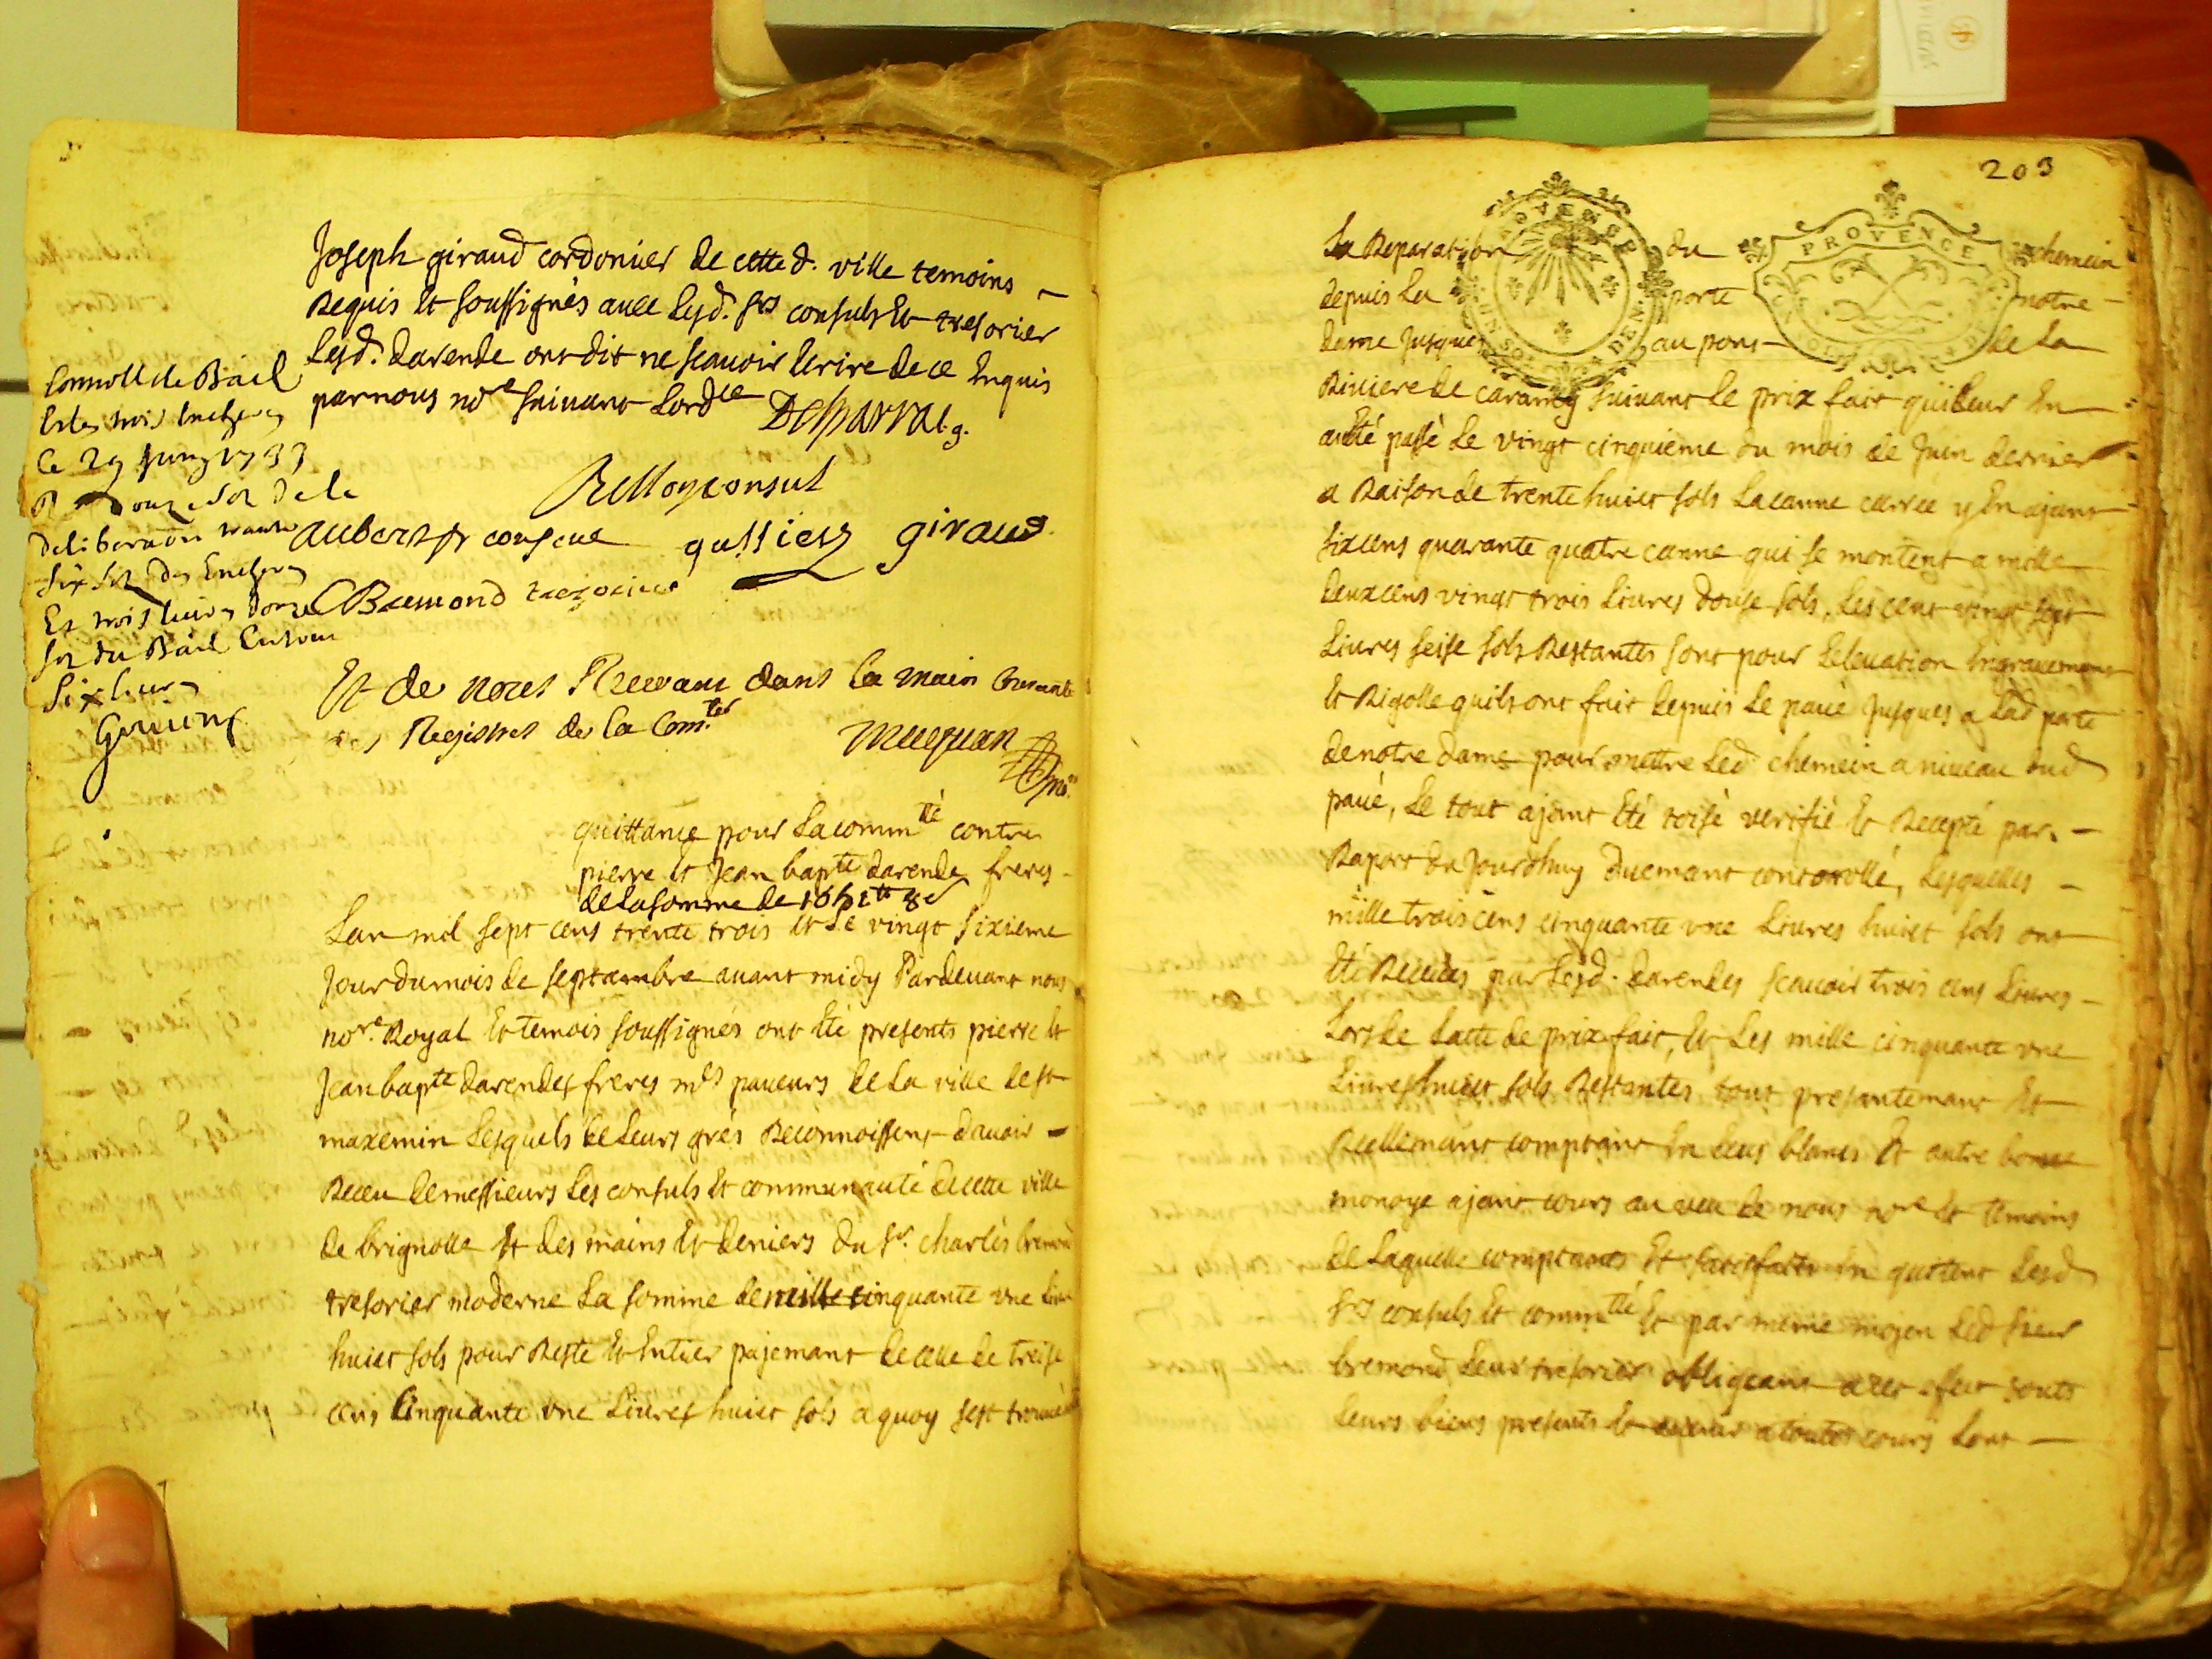 Joseph giraud cordonier de cette d. ville temoins
Requis et soussignés avec lesd. srs consuls et tresorier
lesd. darende ont dit ne scavoir écrire de ce enquis
par nous nore suivant lordce
Bellon consul
aubert consul
giraud
Bremond tresorier
Controllé de Bail
et les trois encheres
le 29 Juin 1733
R douze sols de la
deliberaõn
six sols des encheres
et trois livres douze
sols du Bail
six livres
Et de nous Recevant dans la main
des Registres de la Comté
quittance pour la commté contre
pierre et Jean bapte darende freres
de la somme de 1051 tt 8 s
Lan mil sept cens trente trois et le vingt sixieme
Jour du mois de septambre avant midy Pardevant nous
nore. Royal et temois soussignés ont été presents pierre et
Jean bapte darendes freres mes paveurs de la ville de st
maxemin lesquels de leurs grés Reconnoissent davoir
Receu de messieurs les consuls et communauté de cette ville
de brignolle et des mains et deniers du sr. charles bremond
tresorier moderne la somme de mille cinquante une livres
huict sols pour Reste et entier pajemant de celle de treise
cens cinquante une livres huict sols a quoy sest trouvée
203
PROVENCE
la Reparation du chemein
depuis la porte notre
dame jusques au pont de la
Riviere de caramy suivant le prix fait quileur en
a été passé le vingt cinquieme du mois de Juin dernier
a Raison de trente huict sols la canne carree y en ajant
six cens quarante quatre canne qui se montent a mille
deux cens vingt trois livres douse sols, les cent vingt sept
livres seise sols Restantes sont pour lelevation engravement
et Rigolle quils ont fait depuis le pavé jusques a lad porte
de notre dame pour mettre led chemein a niveau dud
pavé, le tout ajant été toisé verifié et Recepté par
Raport du jourdhuy duemant contorollé, lesquelles
mille trois cens cinquante une livres huict sols ont
été Receües par lesd. darendes scavoir trois cens livres
lors de lacte de prix fait, et les mille cinquante une
livres huict sols Restantes tout presantemant et
Reellemant comptant en ecus blancs et autre bonne
monoye ajant cours au veu de nous nore et temoins
de laquelle comptants et satisfaits en quittent lesd
srs consuls et commté et par meme moyen led sieur
bremond leur tresorier obligeans a cet efect touts
leurs biens presents et avenir a toutes cours